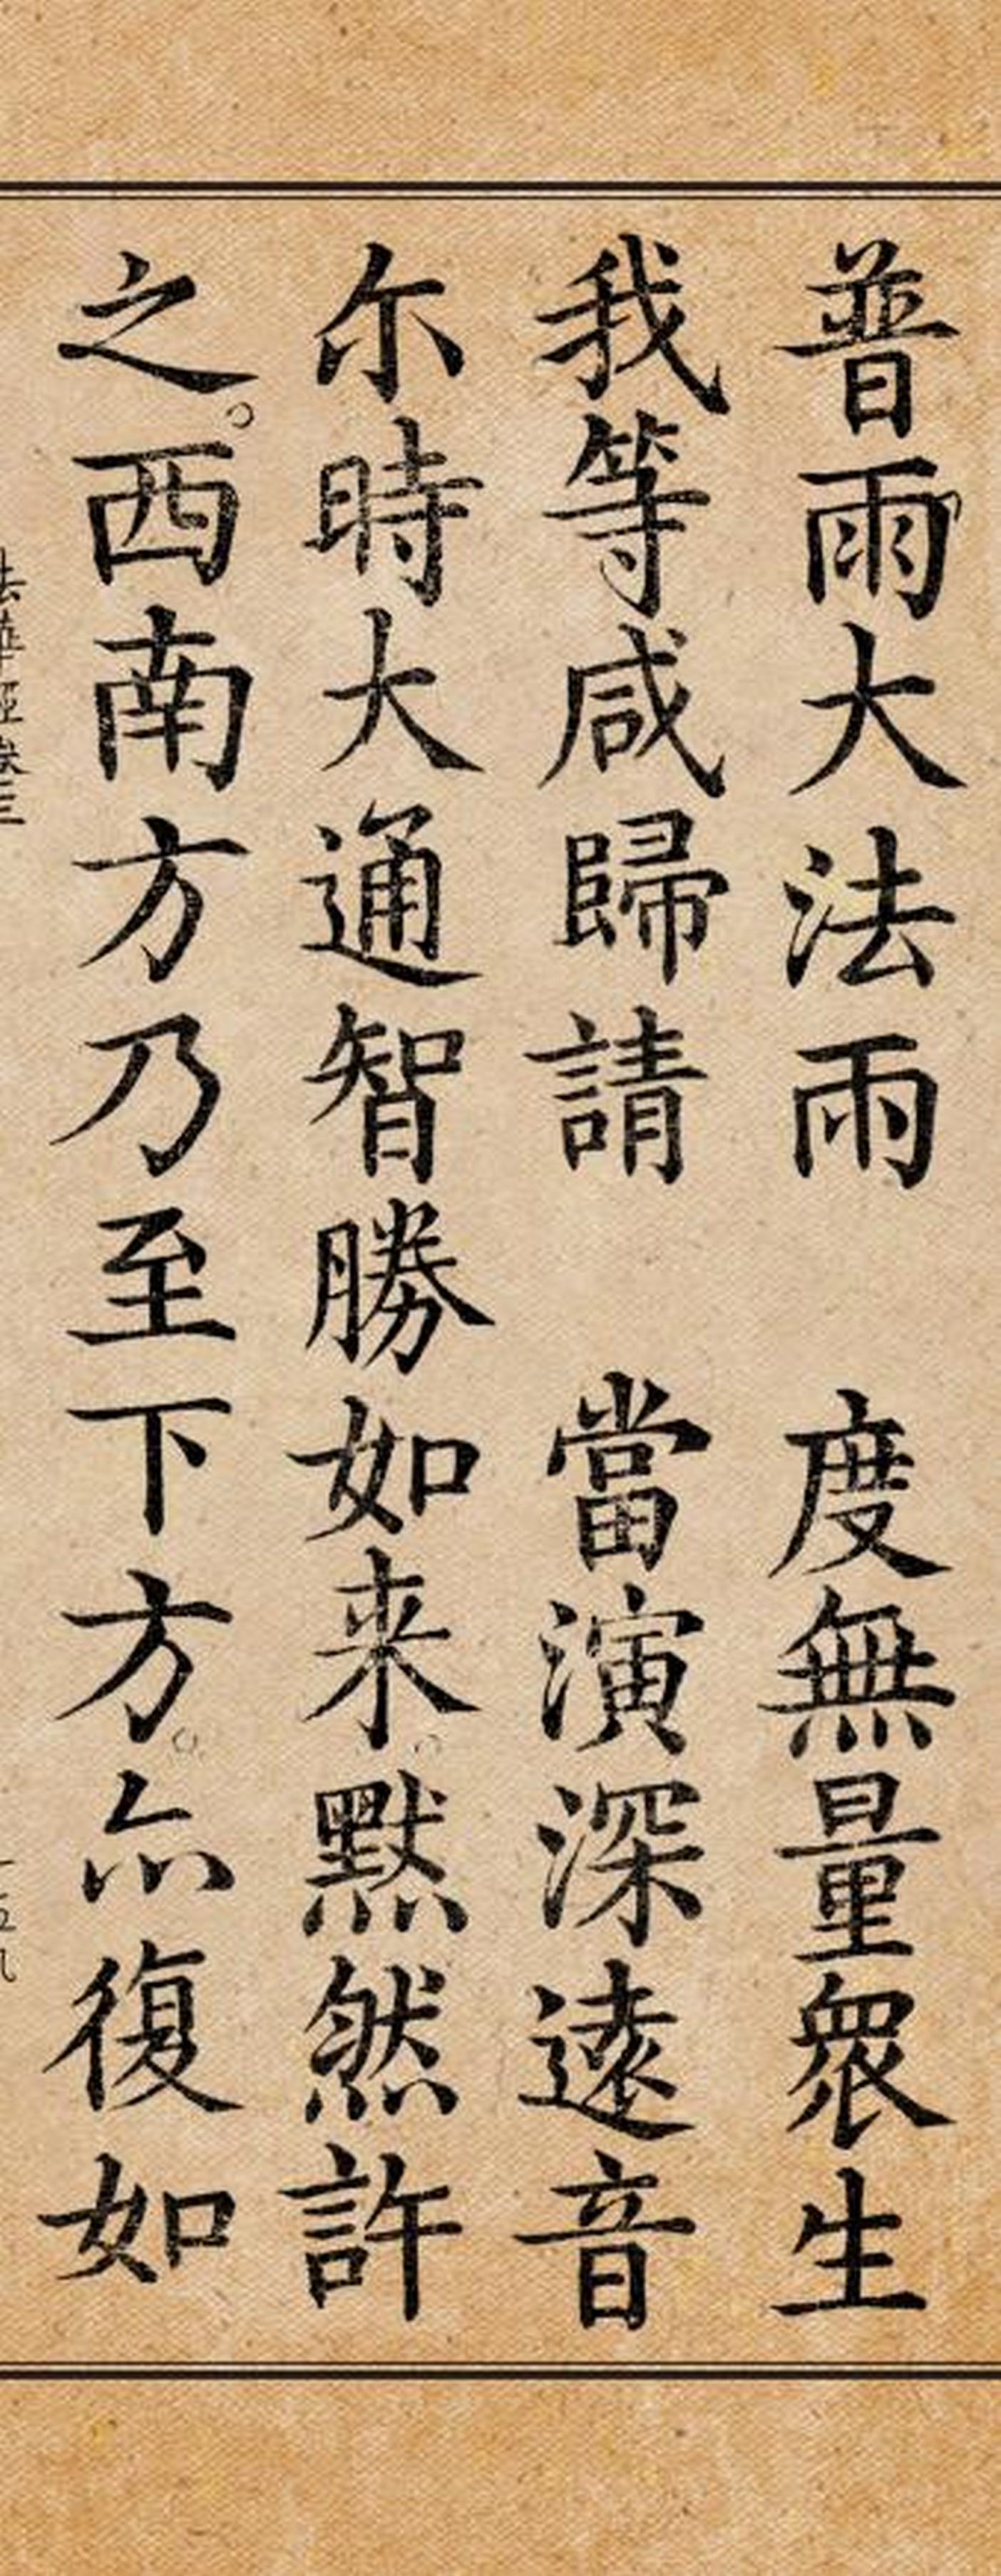 普雨大法雨　度無量衆生
我等咸歸請　當演深遠音
尔時大通智勝如来。默然許
之。西南方乃至下方。亦復如
法華經卷三